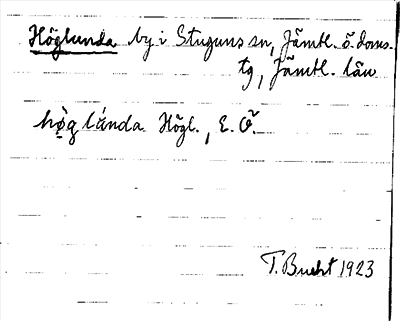 Höglunda by i Stuguns sn, Jämtl. ö. doms.
tg, Jämtl. län
hö̀g lúnda Högl., E. Ö.
T. Bucht 1923